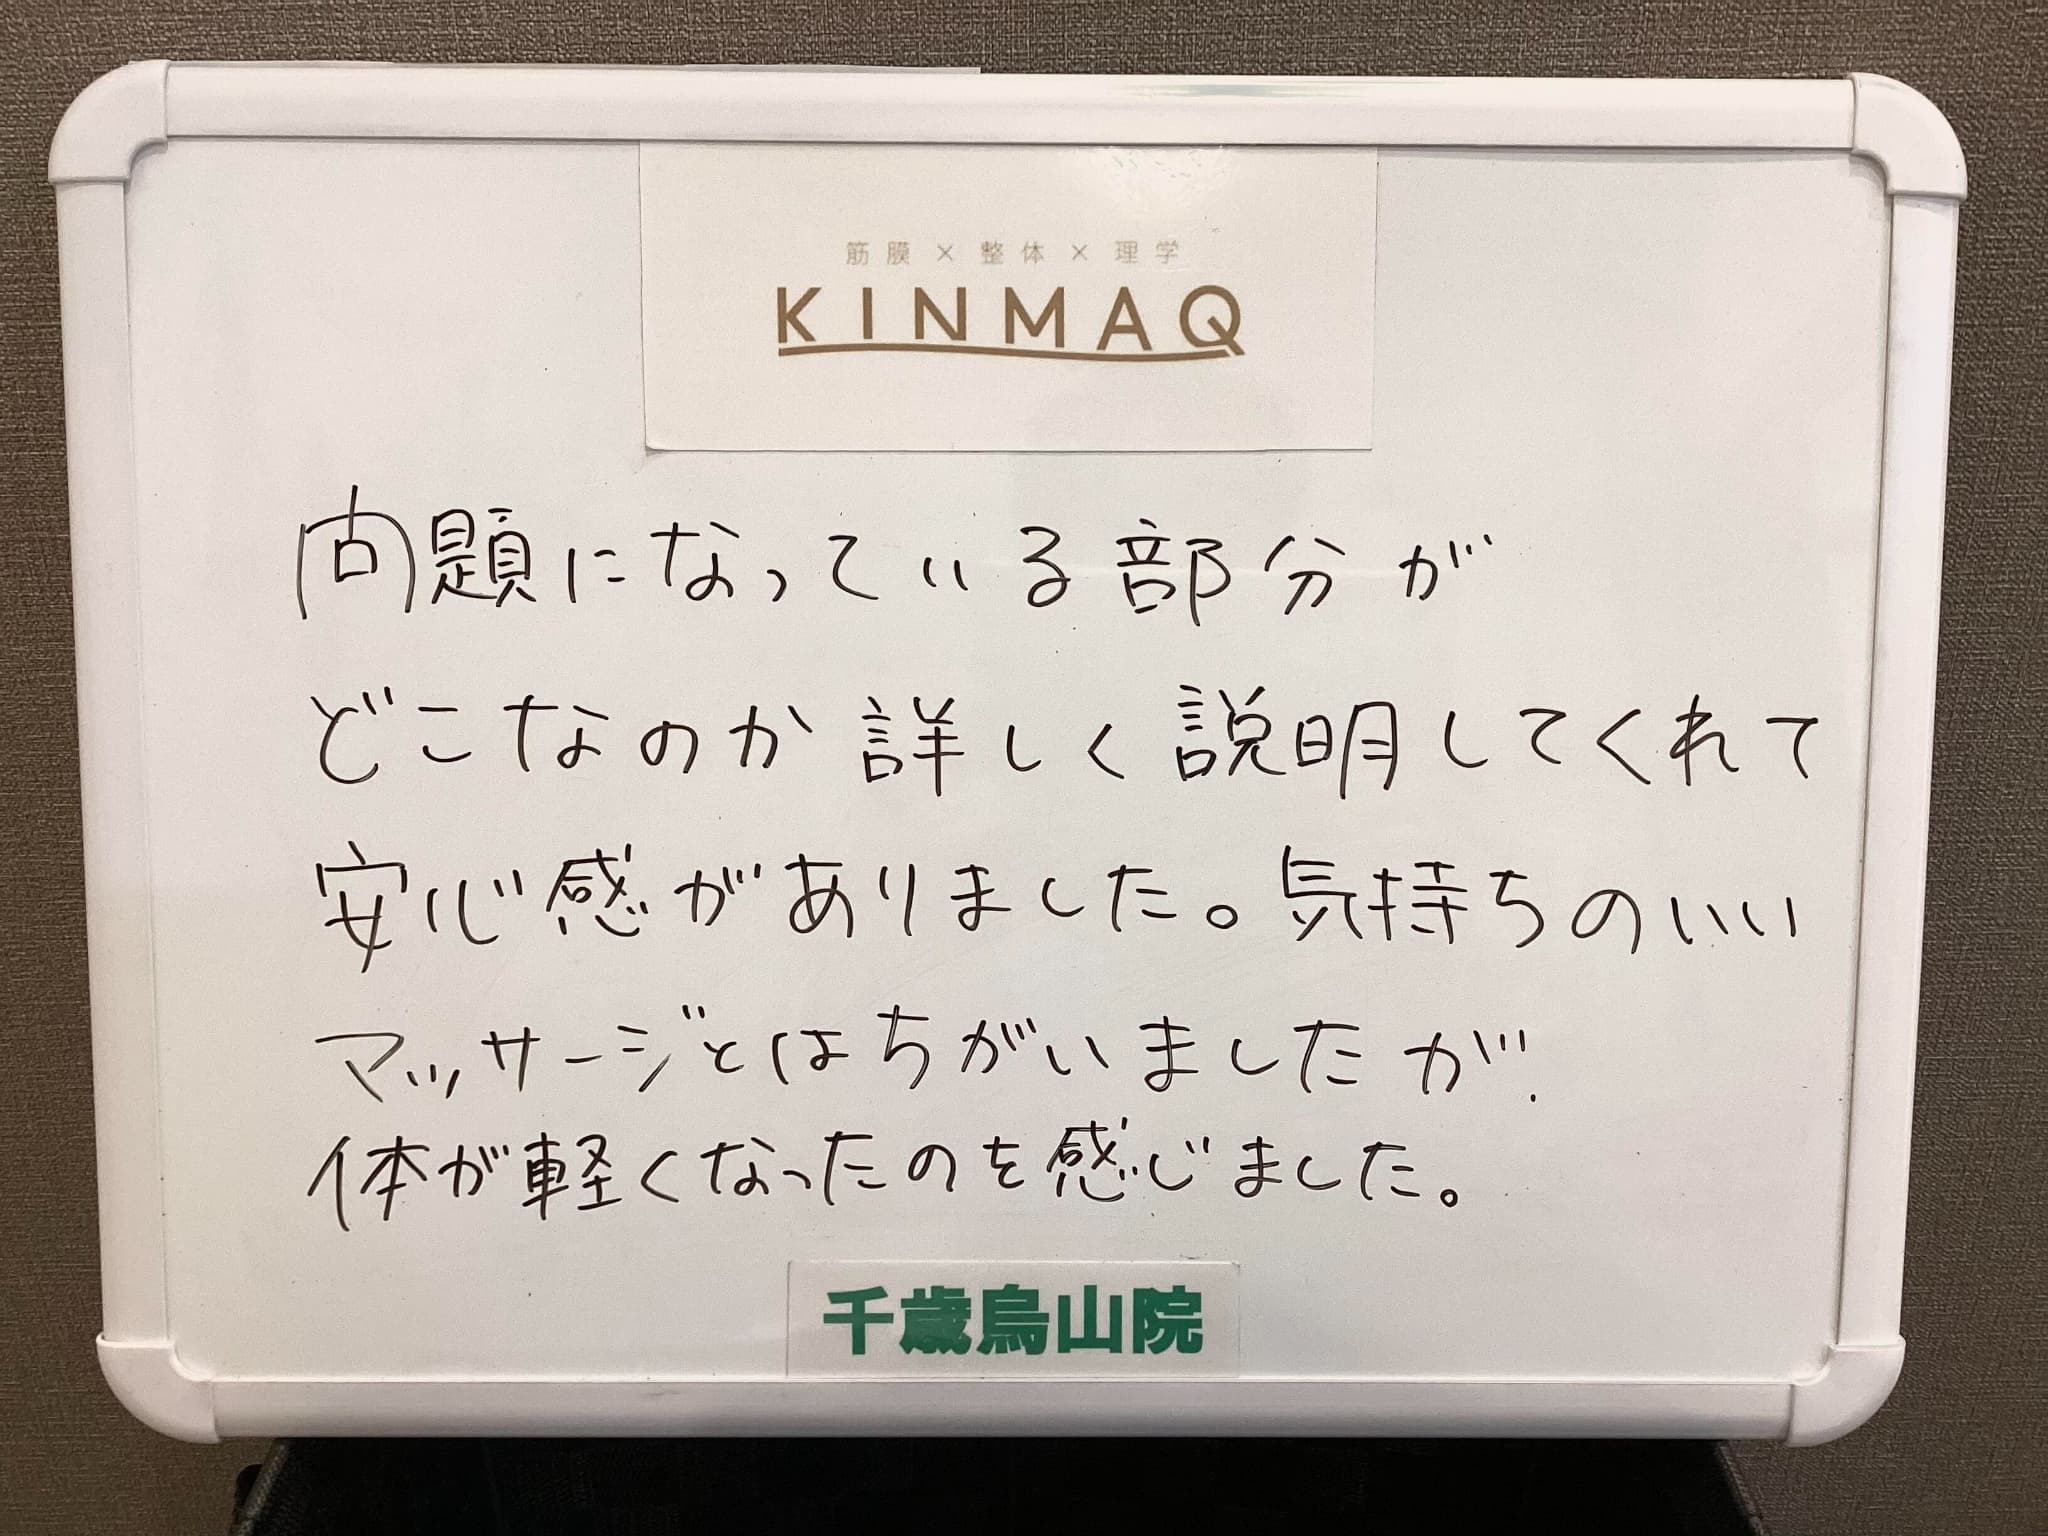 筋膜×整体×理学
KINMAQ
問題になっている部分が
どこなのか詳しく説明してくれて
安心感がありました。気持ちのいい
マッサージとはちがいましたが.
体が軽くなったのを感じました。
千歳烏山院